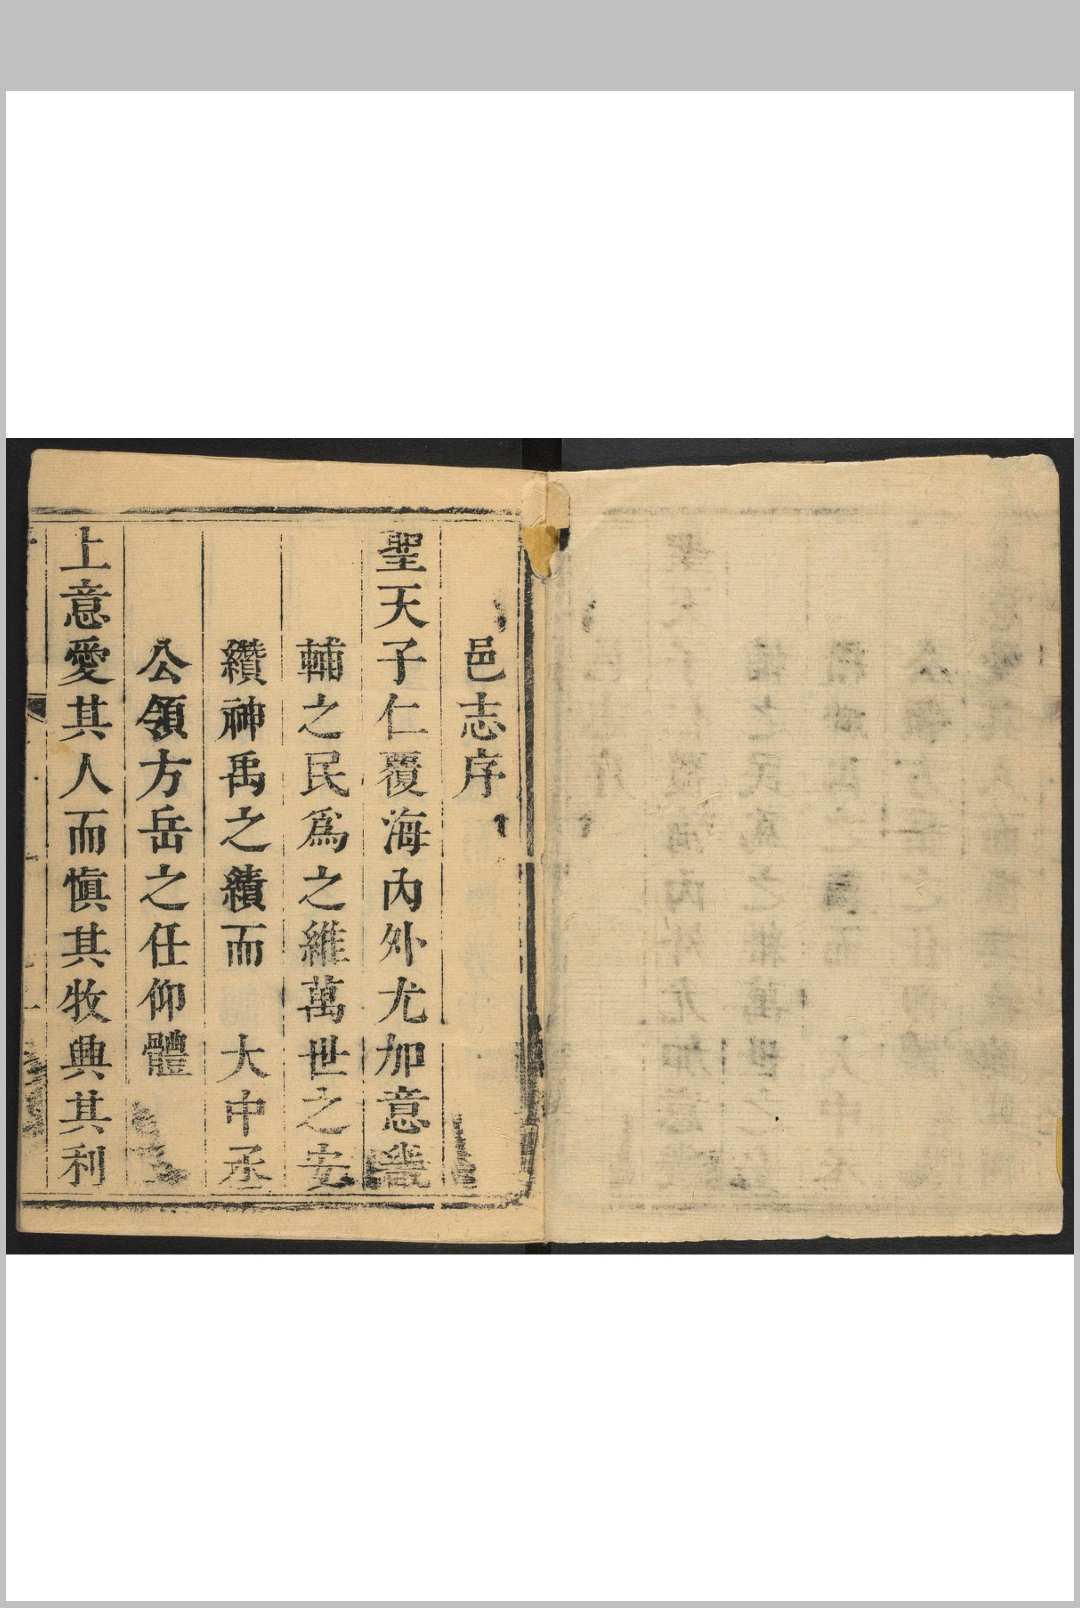 邑志序
聖天子仁覆海內外尤加意畿
輔之民爲之維萬世之安
纘神禹之績而　大中丞
公領方岳之任仰體
上意愛其人而慎其牧興其利